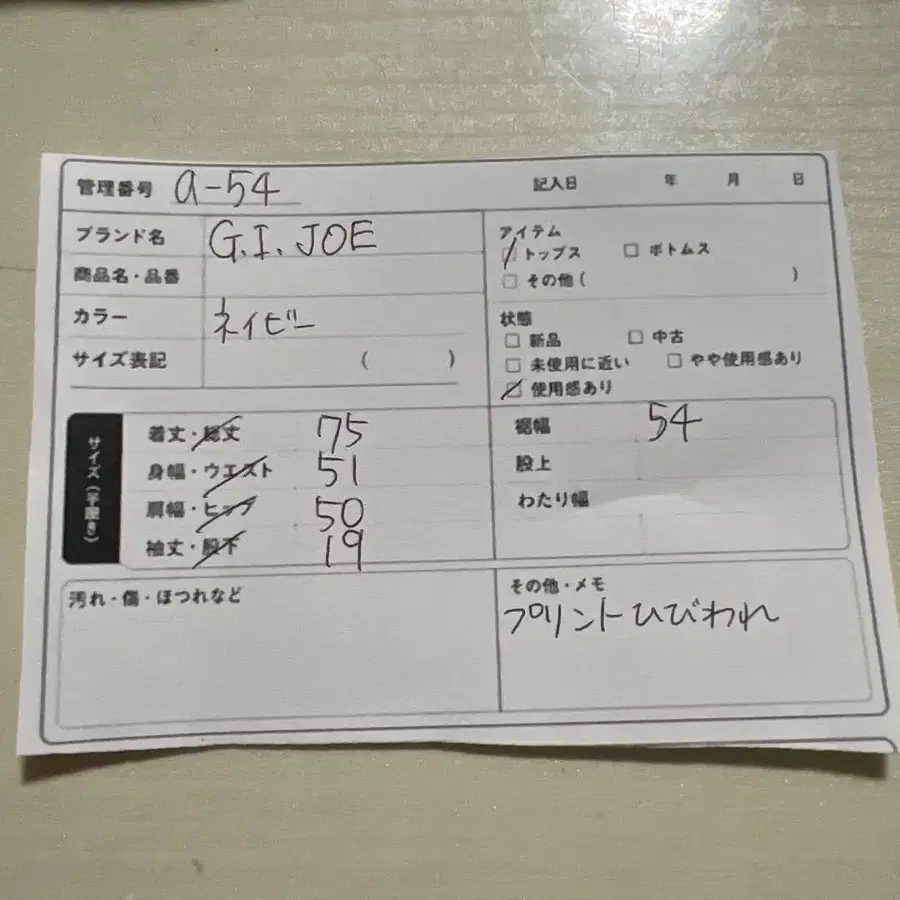 管理番号 a-54 記入日 年 月 日
ブランド名 G.I. JOE
商品名・品番
カラー ネイビー
サイズ表記 ( )
アイテム
トップス ボトムス
その他 ( )
状態
新品 中古
未使用に近い やや使用感あり
使用感あり
サイズ(平置き)
着丈・総丈 75
身幅・ウエスト 51
肩幅・ヒップ 50
袖丈・股下 19
裾幅 54
股上
わたり幅
汚れ・傷・ほつれなど
その他・メモ
プリントひびわれ